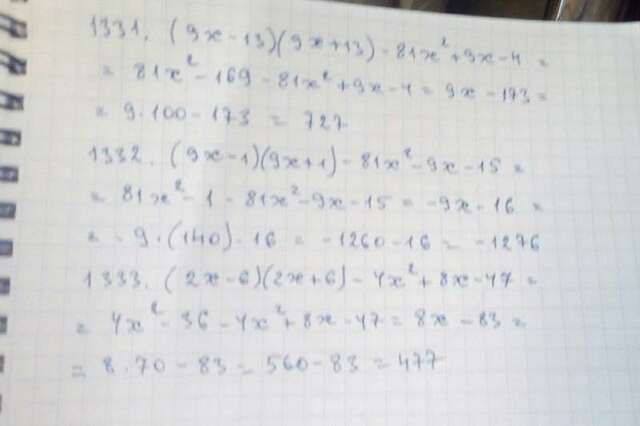 1331. (9x-13)(9x+13) - 81x²+9x-4 =
= 81x² - 169 - 81x² + 9x - 4 = 9x - 173 =
= 9·100 - 173 = 727
1332. (9x-1)(9x+1) - 81x² - 9x - 15 =
= 81x² - 1 - 81x² - 9x - 15 = -9x - 16 =
= -9·(140) - 16 = -1260 - 16 = -1276
1333. (2x-6)(2x+6) - 4x² + 8x - 47 =
= 4x² - 36 - 4x² + 8x - 47 = 8x - 83 =
= 8·70 - 83 = 560 - 83 = 477